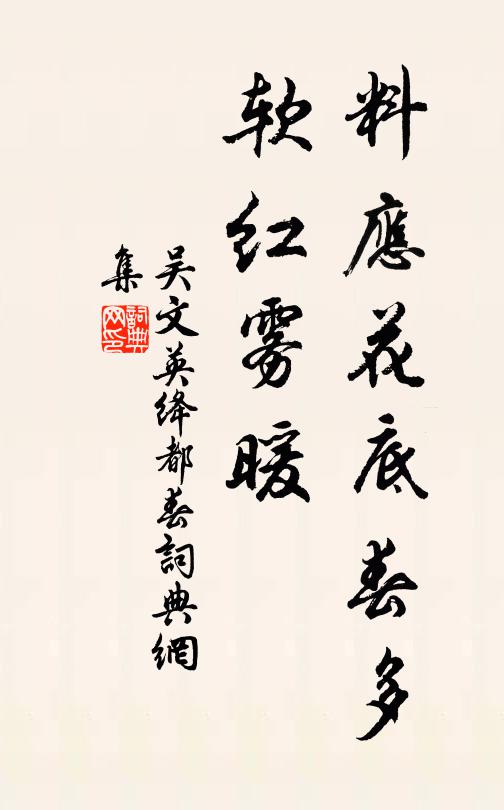 料應花底春多
软红雾暖
吴文英绛都春詞典網
集
詞典
网印